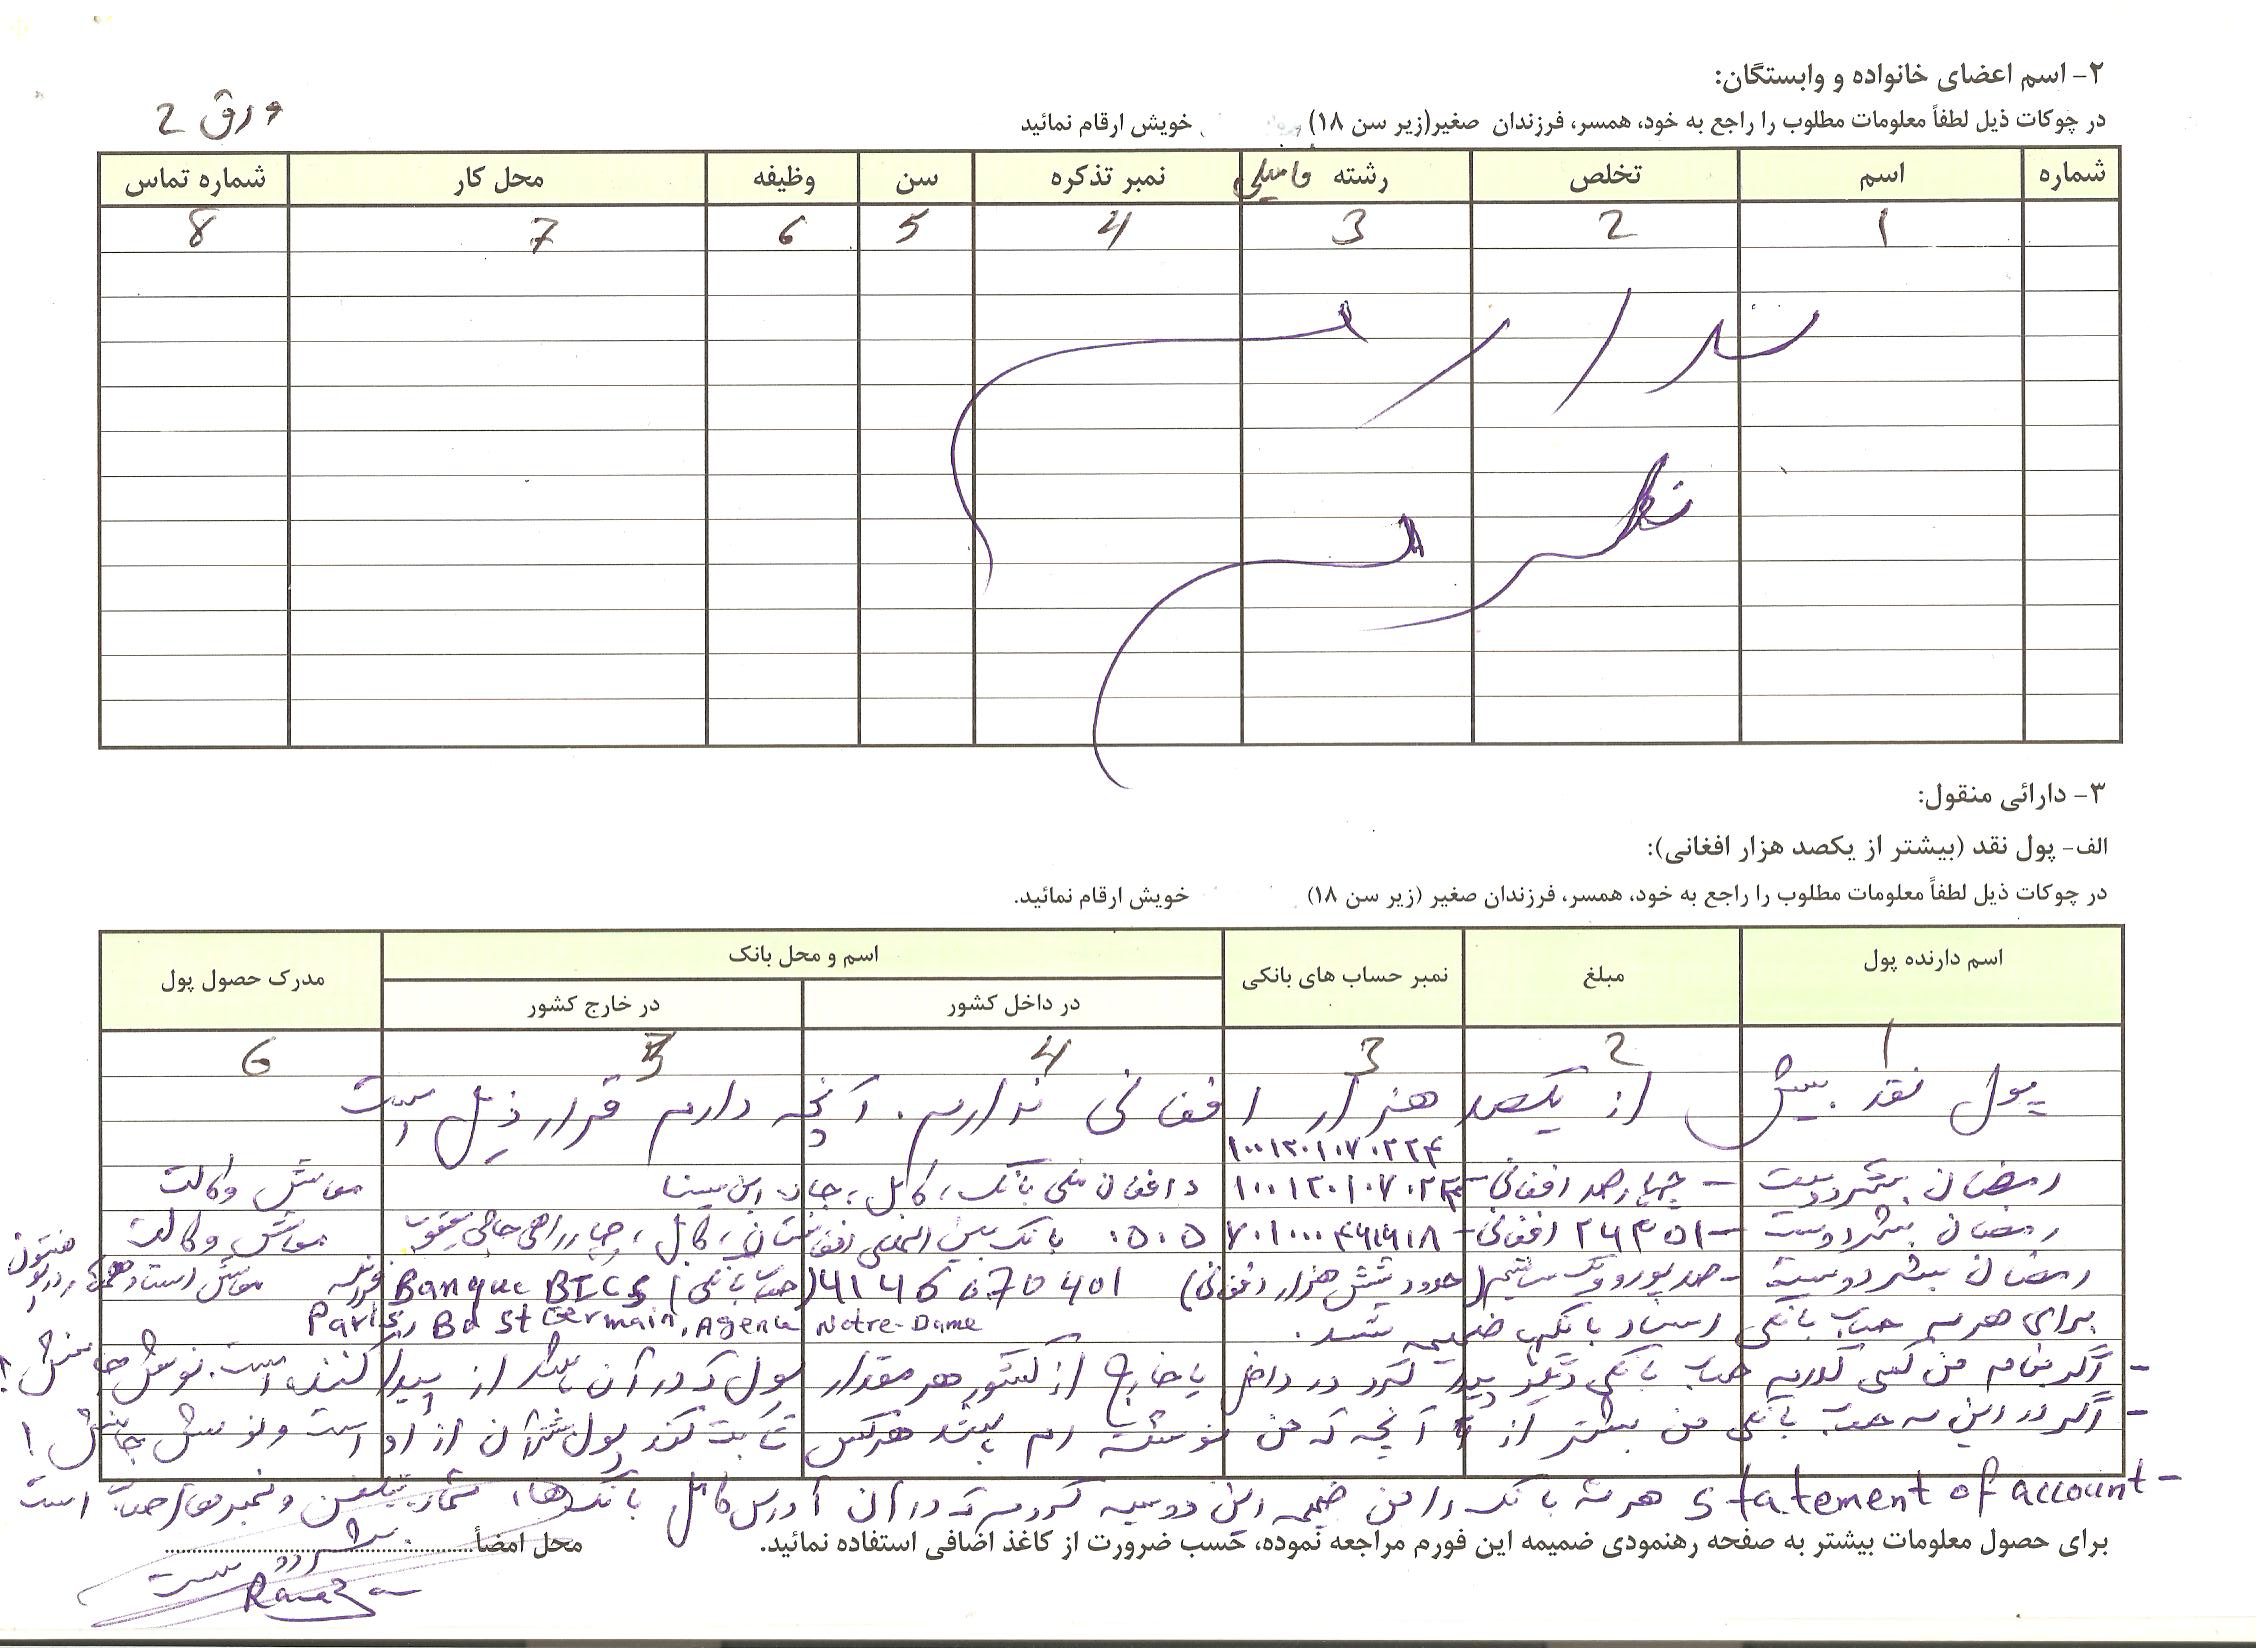 ۲- اسم اعضای خانواده و وابستگان:
ورق 2
در چوکات ذیل لطفاً معلومات مطلوب را راجع به خود، همسر، فرزندان صغیر(زیر سن ۱۸) خویش ارقام نمائید
شماره اسم تخلص رشته فامیلی نمبر تذکره سن وظیفه محل کار شماره تماس
1 2 3 4 5 6 7 8
ندارم
۳- دارائی منقول:
الف- پول نقد (بیشتر از یکصد هزار افغانی):
در چوکات ذیل لطفاً معلومات مطلوب را راجع به خود، همسر، فرزندان صغیر (زیر سن ۱۸) خویش ارقام نمائید.
اسم دارنده پول مبلغ نمبر حساب های بانکی اسم و محل بانک مدرک حصول پول
در داخل کشور در خارج کشور
1 2 3 4 5 6
پول نقد بیش از یکصد هزار افغانی ندارم. آنچه دارم قرار ذیل است
۱۰۰۱۲۰۱۰۷۰۲۲۴
رمضان بشردوست - چهارصد افغانی - د افغانستان ملی بانک، کابل، جاده ابن سینا معاش وکالت
رمضان بشردوست - ۲۶۳۵۱ افغانی - ۰۵۰۵۷۰۱۰۰۰۴۶۱۹۱۸ بانک بین المللی افغانستان، کابل، چهارراهی حاجی یعقوب معاش وکالت
رمضان بشردوست - صد یورو و یک سانتیم (حدود شش هزار افغانی) 4146070401 (حساب بانکی) Banque BICS فرانسه معاش
Paris, Bd St Germain, Agence Notre-Dame
برای هر سه حساب بانکی اسناد بانکی ضمیمه شد.
- اگر بنام من کسی کدام حساب بانکی دیگر پیدا کرد در داخل یا خارج از کشور هر مقدار پول که در آن باشد از پیدا کننده است. نوش جانش!
- اگر در این سه حساب بانکی من بیشتر از آنچه که من نوشته ام باشد هرکس ثابت کند پول بیشتر آن از او است و نوش جانش!
- statement of account هر سه بانک را من ضمیمه این دوسیه کردم که در آن آدرس کامل بانک ها، شماره تیلفون و نمبرهای حساب است
برای حصول معلومات بیشتر به صفحه رهنمودی ضمیمه این فورم مراجعه نموده، حسب ضرورت از کاغذ اضافی استفاده نمائید. محل امضأ
بشردوست